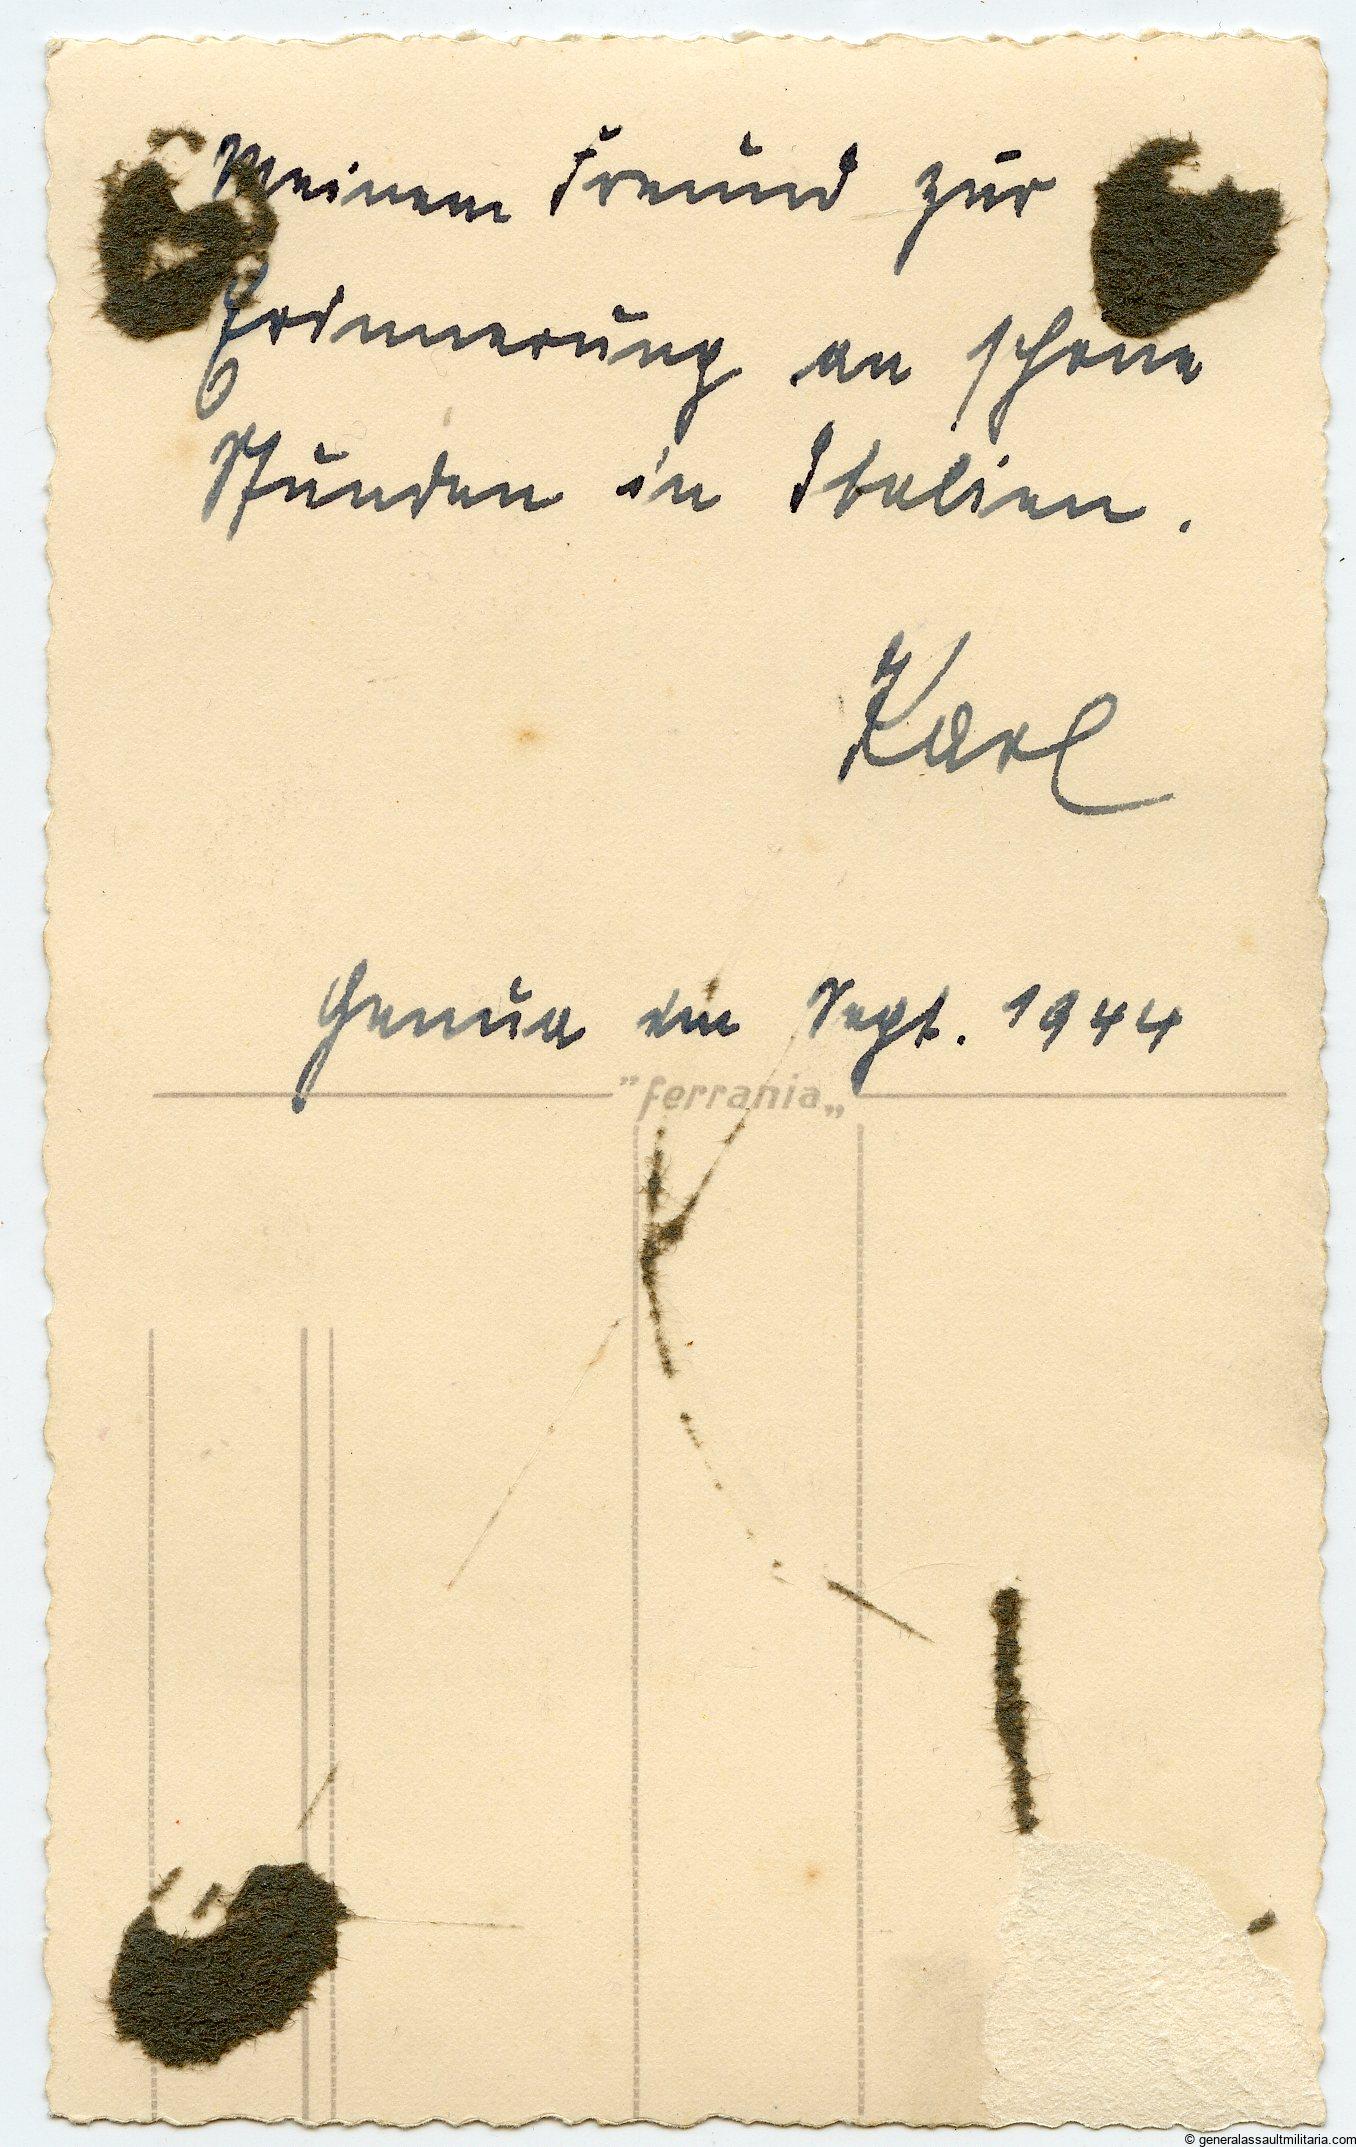 Meinem Freund zur
Erinnerung an schöne
Stunden in Italien.
Karl
Genua im Sept. 1944
"ferrania„
© generalassaultmilitaria.com